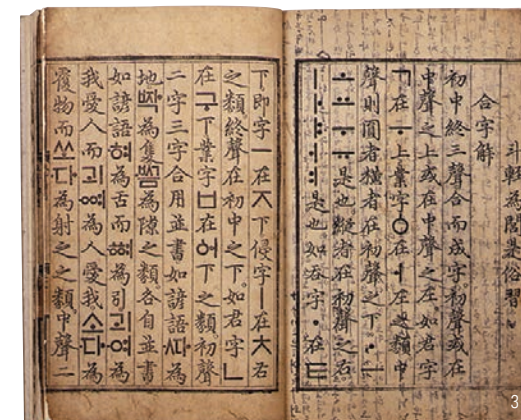 斗輕為閭是俗習
合字解
初中終三聲合而成字。初聲或在
中聲之上。或在中聲之左。如君字
ㄱ在ㅜ上。業字ㆁ在ㅓ左之類。中
聲則圓者橫者在初聲之下。ㆍㅡ
ㅗㅛㅜㅠ是也。縱者在初聲之右。
ㅣㅏㅑㅓㅕ是也。如呑字ㆍ在ㅌ
下。即字ㅡ在ㅈ下。侵字ㅣ在ㅊ右
之類。終聲在初中之下。如君字ㄴ
在구下。業字ㅂ在ᅌᅥ下之類。初聲
二字三字合用並書。如諺語ᄯᅡ為
地。ᄧᅡᆨ為隻。ᄢᅳᆷ為隙之類。各自並書
如諺語혀為舌而ᅘᅧ為引。괴여為
我愛人而괴ᅇᅧ為人愛我。소다為
覆物而쏘다為射之之類。中聲二
3